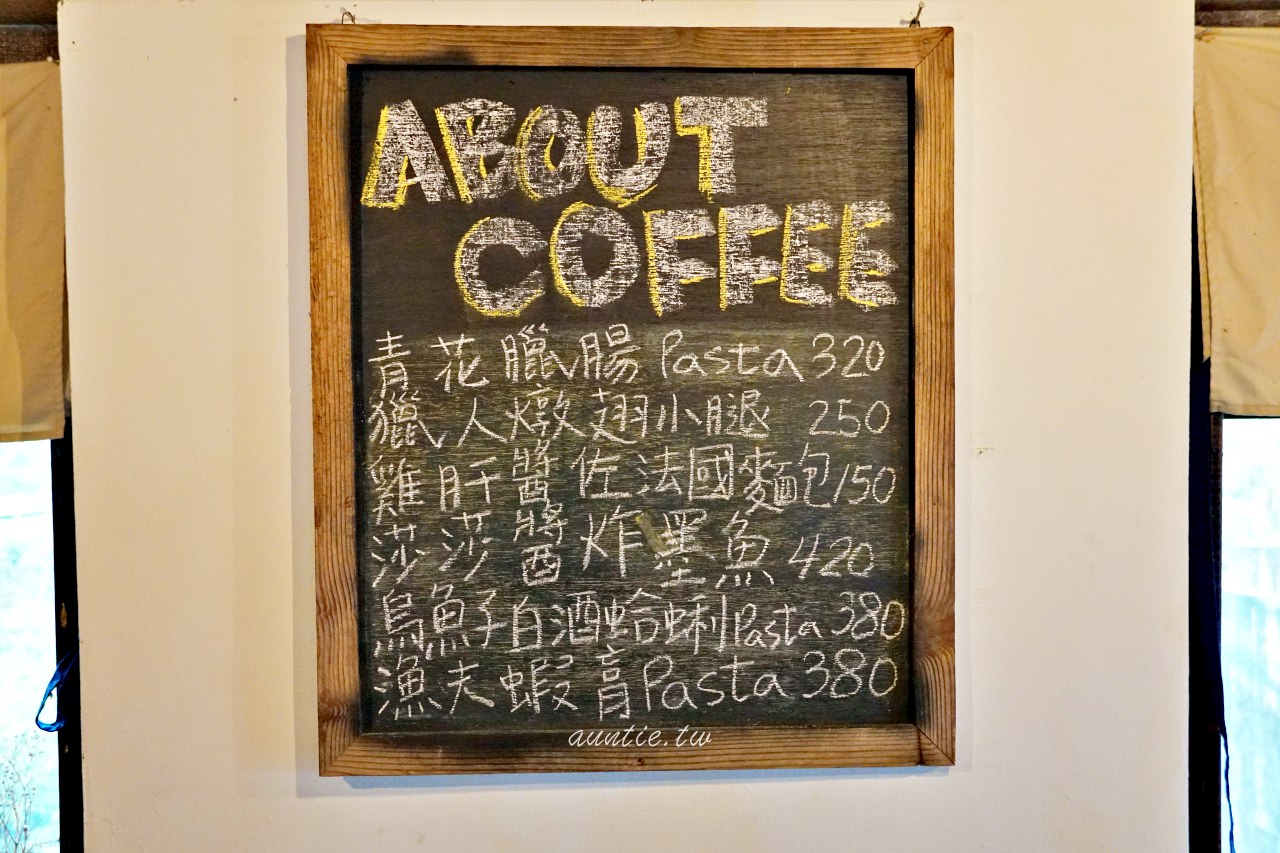 ABOUT
COFFEE
青花臘腸 Pasta 320
獵人燉翅小腿 250
雞肝醬佐法國麵包 150
莎莎醬炸墨魚 420
烏魚子白酒蛤蜊 Pasta 380
漁夫蝦膏 Pasta 380
auntie.tw